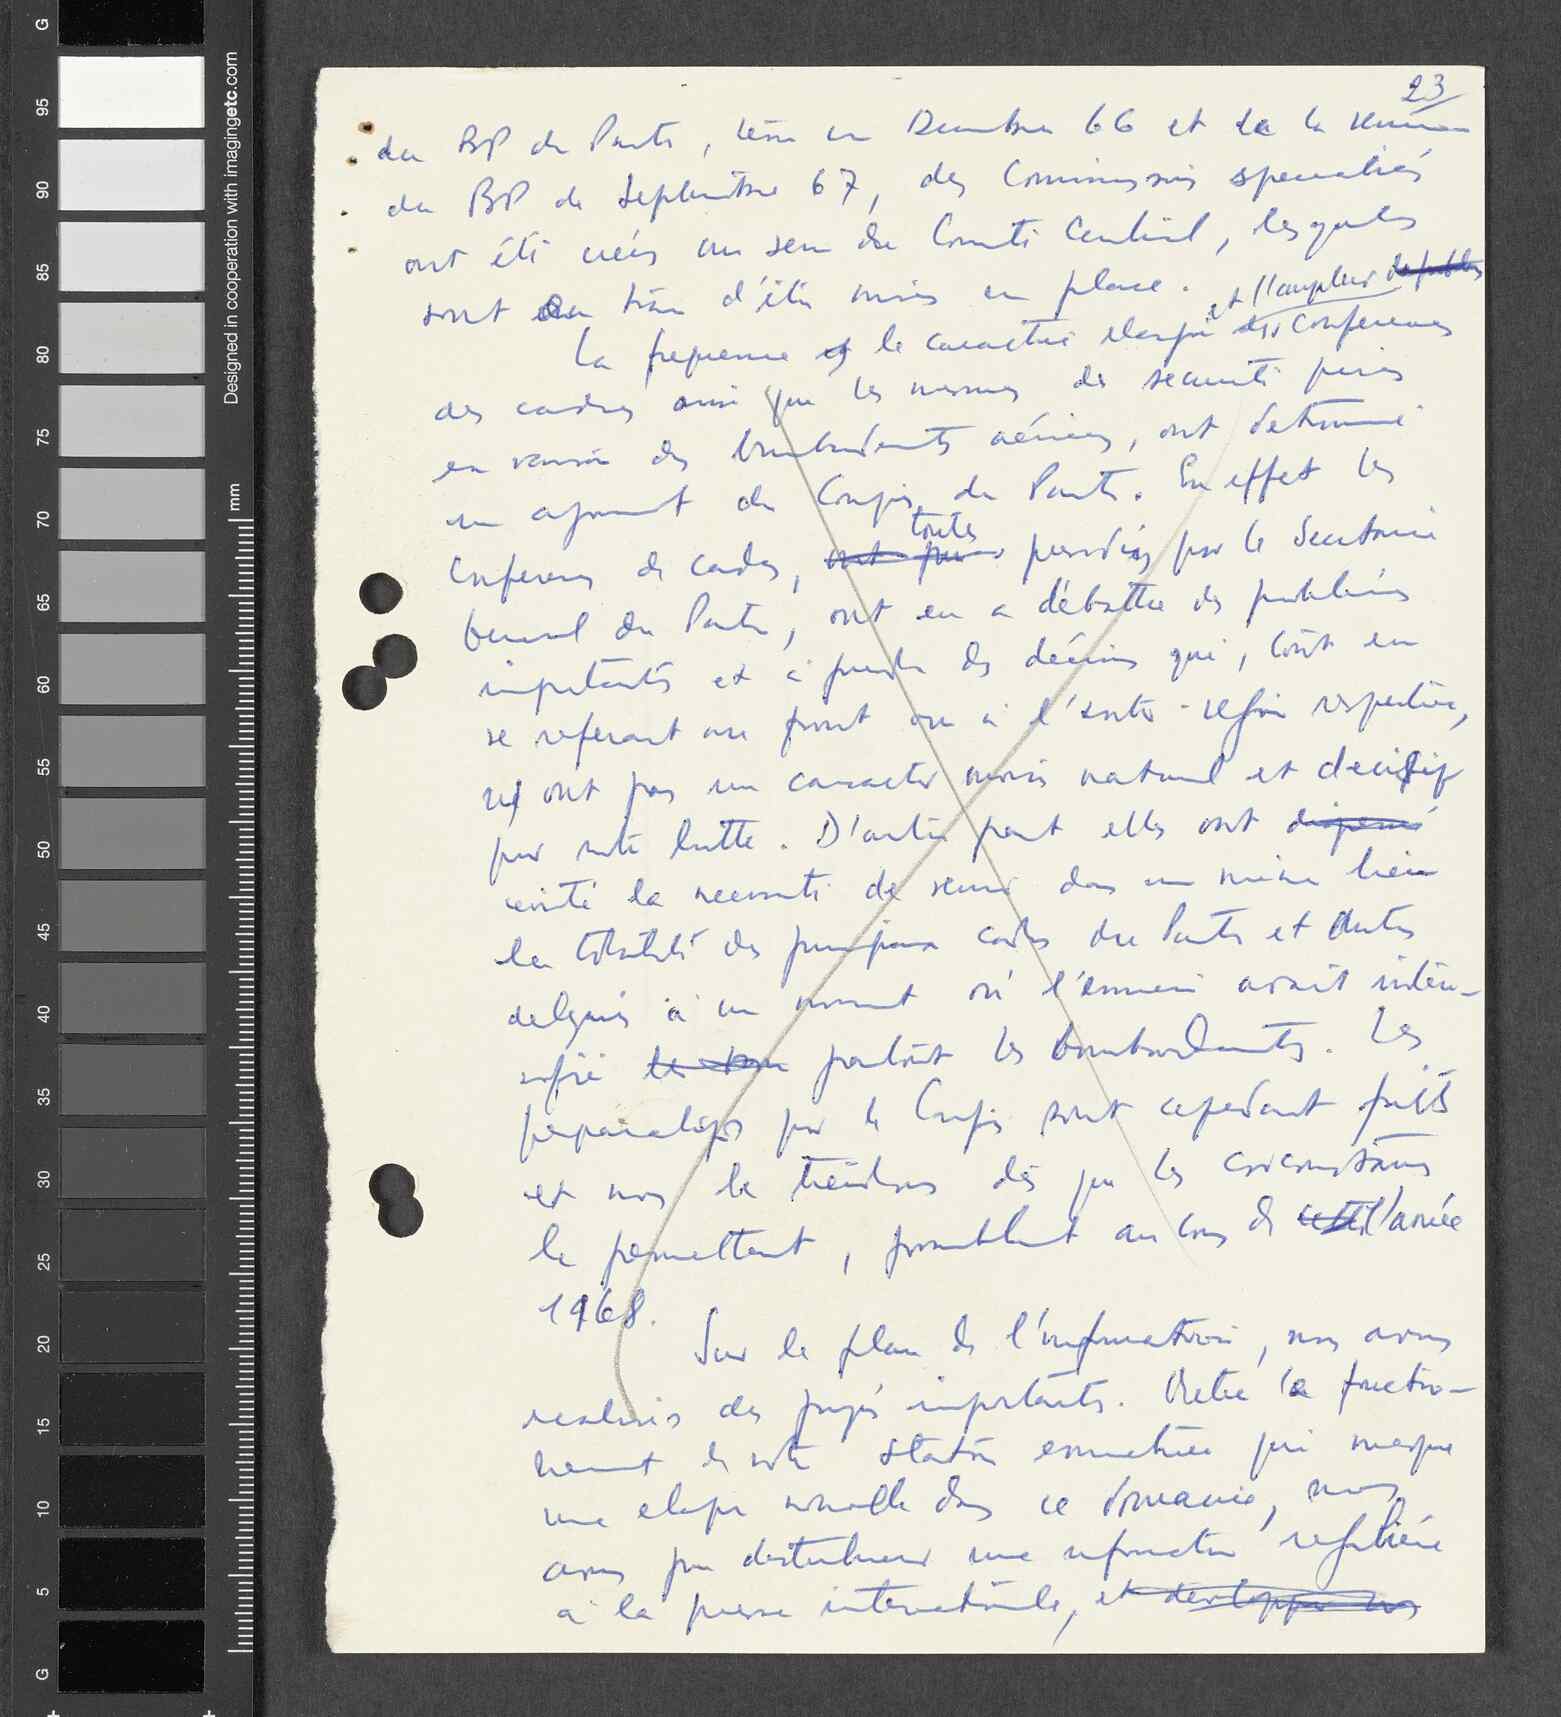 23
du BP du Parti, tenu en Decembre 66 et de la reunion
du BP de Septembre 67, des Commissions specialisés
ont été créés au sein du Comité Central, lesquels
sont en train d'être mises en place.
et l'ampleur
La frequence et le caractère elargi des Conferences
des cadres ainsi que les mesures de securité prises
en raison des bombardements aériens, ont determiné
un ajournement du Congrès du Parti. En effet les
toutes
Conferences de cadres, ont presidées par le Secretaire
General du Parti, ont eu a débattre des problèmes
importants et à prendre des décisions qui, tout en
se referant au front ou à l'inter-region respective,
n'ont pas un caractère moins national et decisif
pour notre lutte. D'autre part elles ont
evité la necessité de reunir dans un même lieu
la totalité des principaux cadres du Parti et autres
delegués à un moment où l'ennemi avait inten-
sifié partout les bombardements. Les
preparatifs pour le Congrès sont cependant faits
et nous le tiendrons dès que les circonstances
le permettent, probablement au cours de cette l'année
1968.
Sur le plan de l'information, nous avons
realisés des progrès importants. Outre le fonction-
nement de notre station emettrice qui marque
une etape nouvelle dans ce domaine, nous
avons pu distribuer une information régulière
à la presse internationale, et developper nos